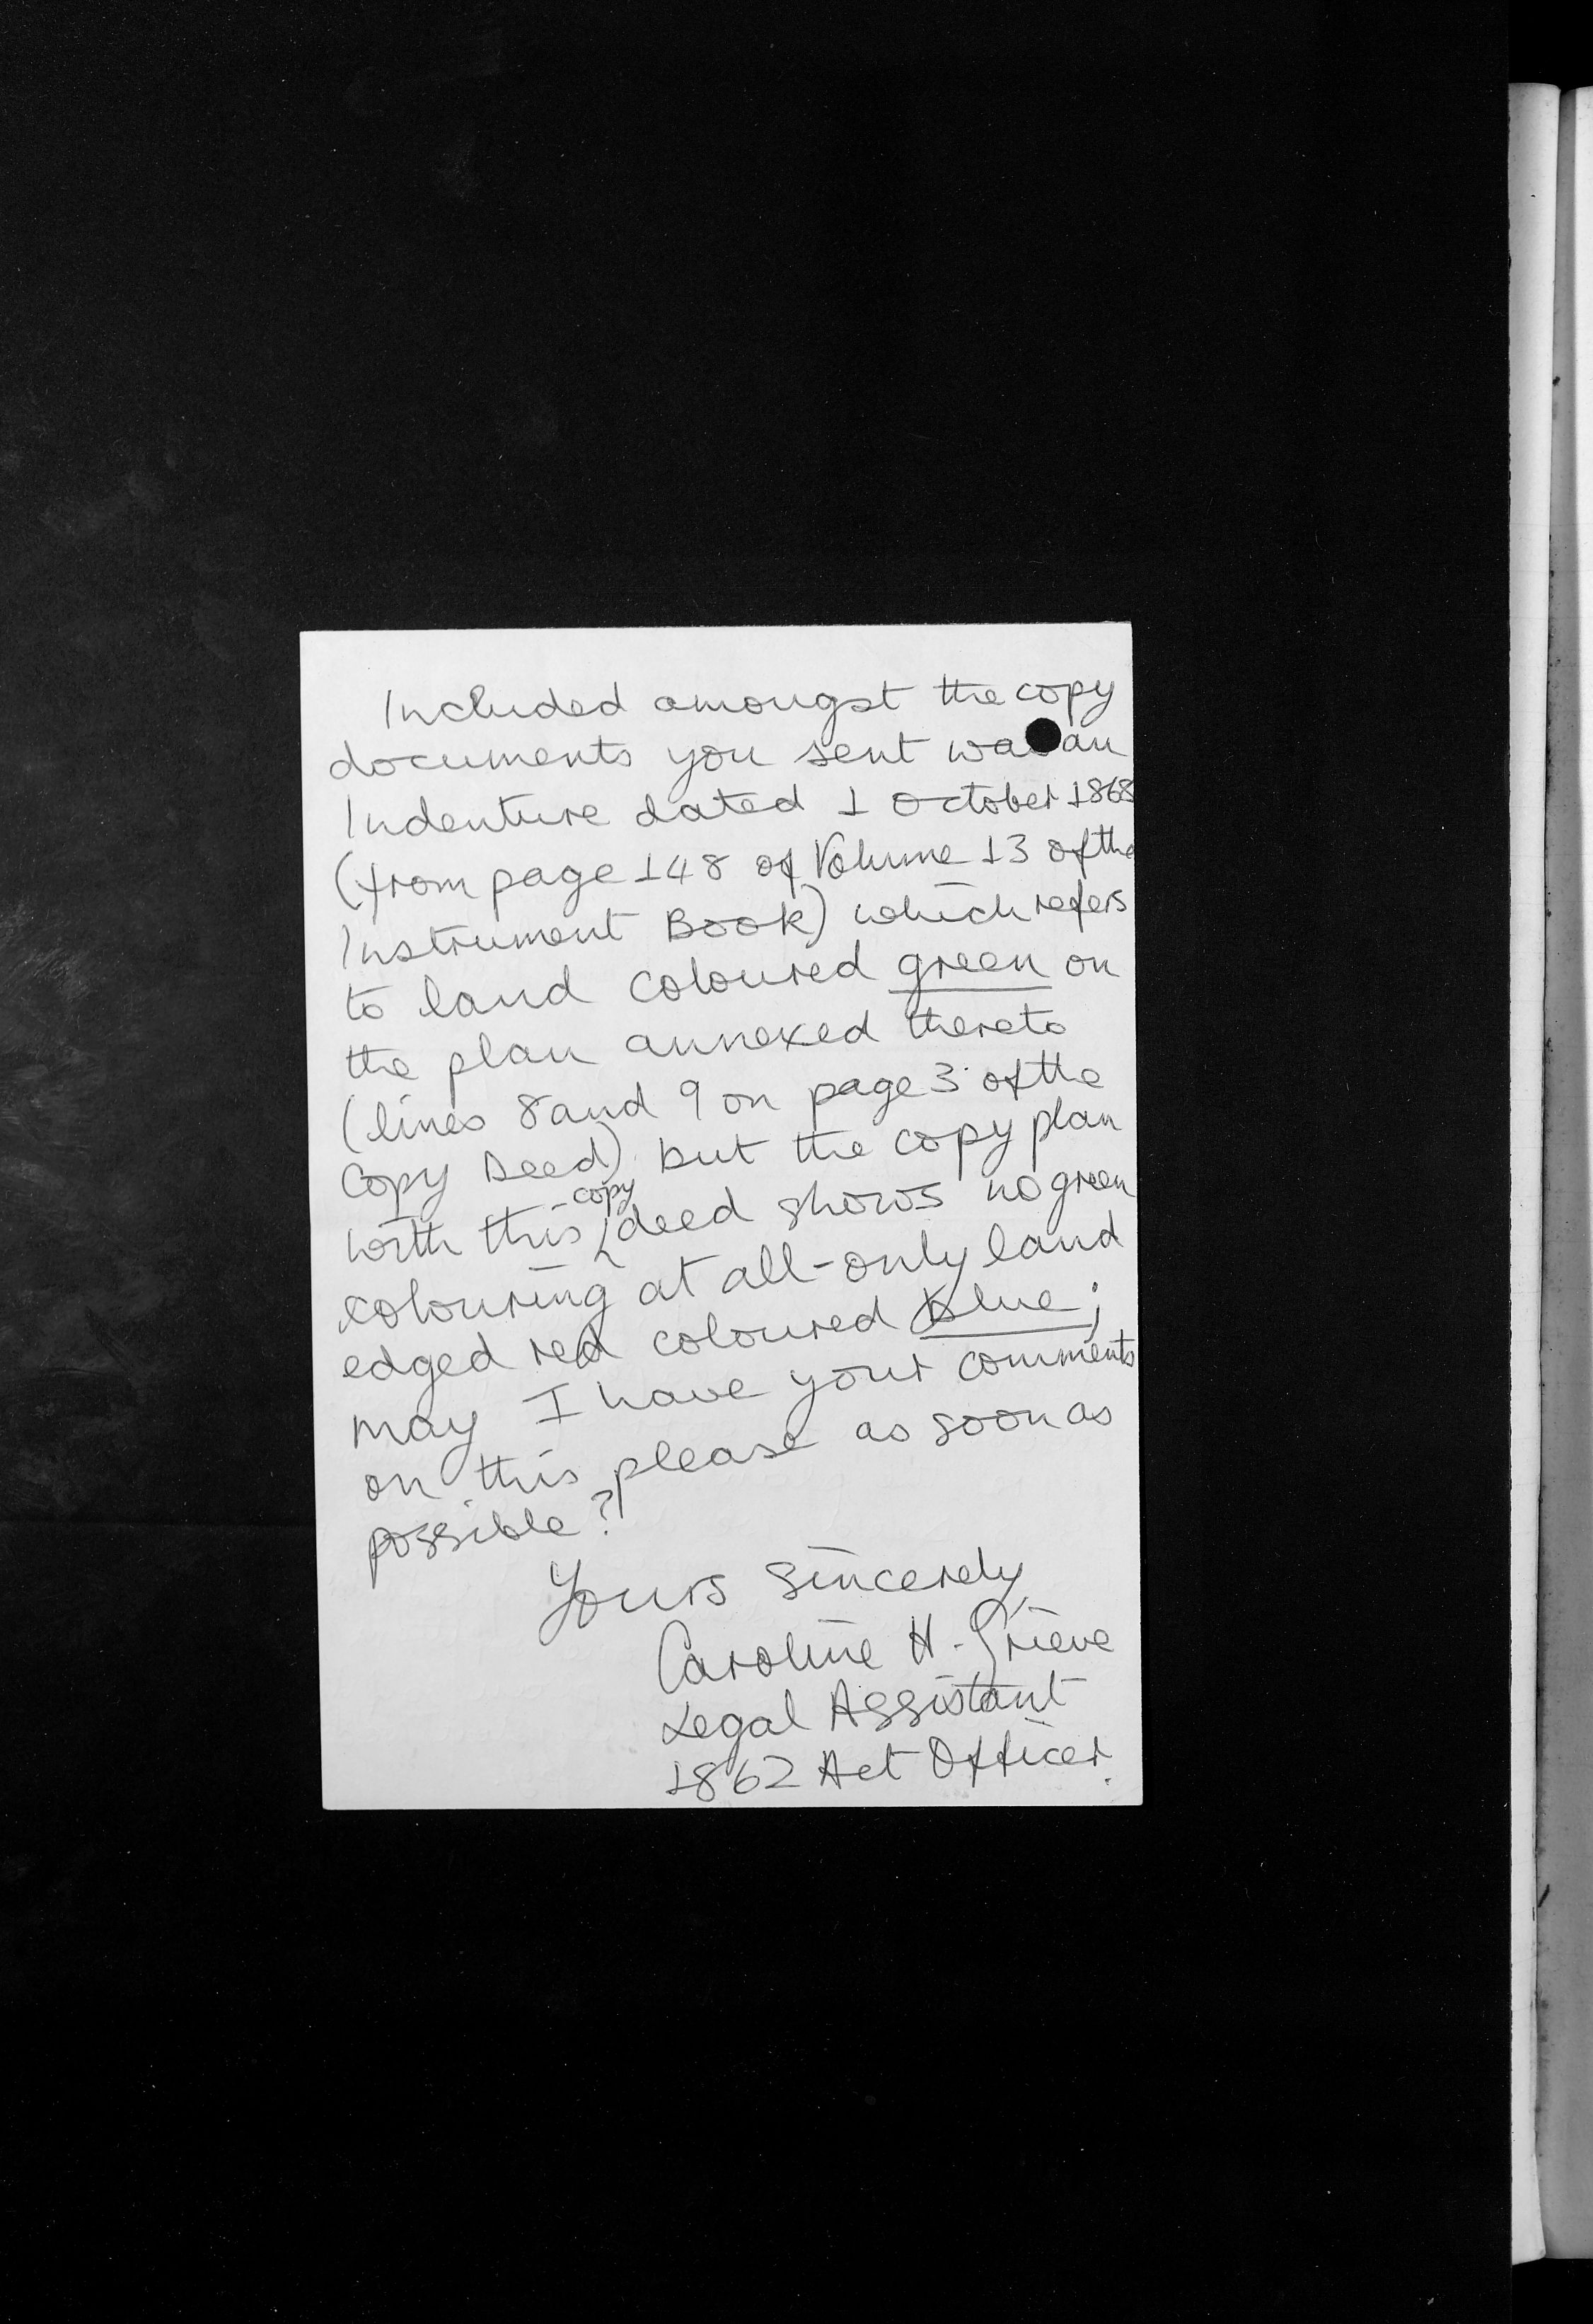 Included amongst the copy
documents you sent was an
Indenture dated 1 October 1868
(from page 148 of Volume 13 of the
Instrument Book) which refers
to land coloured green on
the plan annexed thereto
(lines 8 and 9 on page 3 of the
Copy Deed) but the copy plan
with this copy deed shows no green
colouring at all - only land
edged red coloured blue;
may I have your comments
on this please as soon as
possible?
Yours sincerely,
Caroline H. Grieve
Legal Assistant
1862 Act Officer.